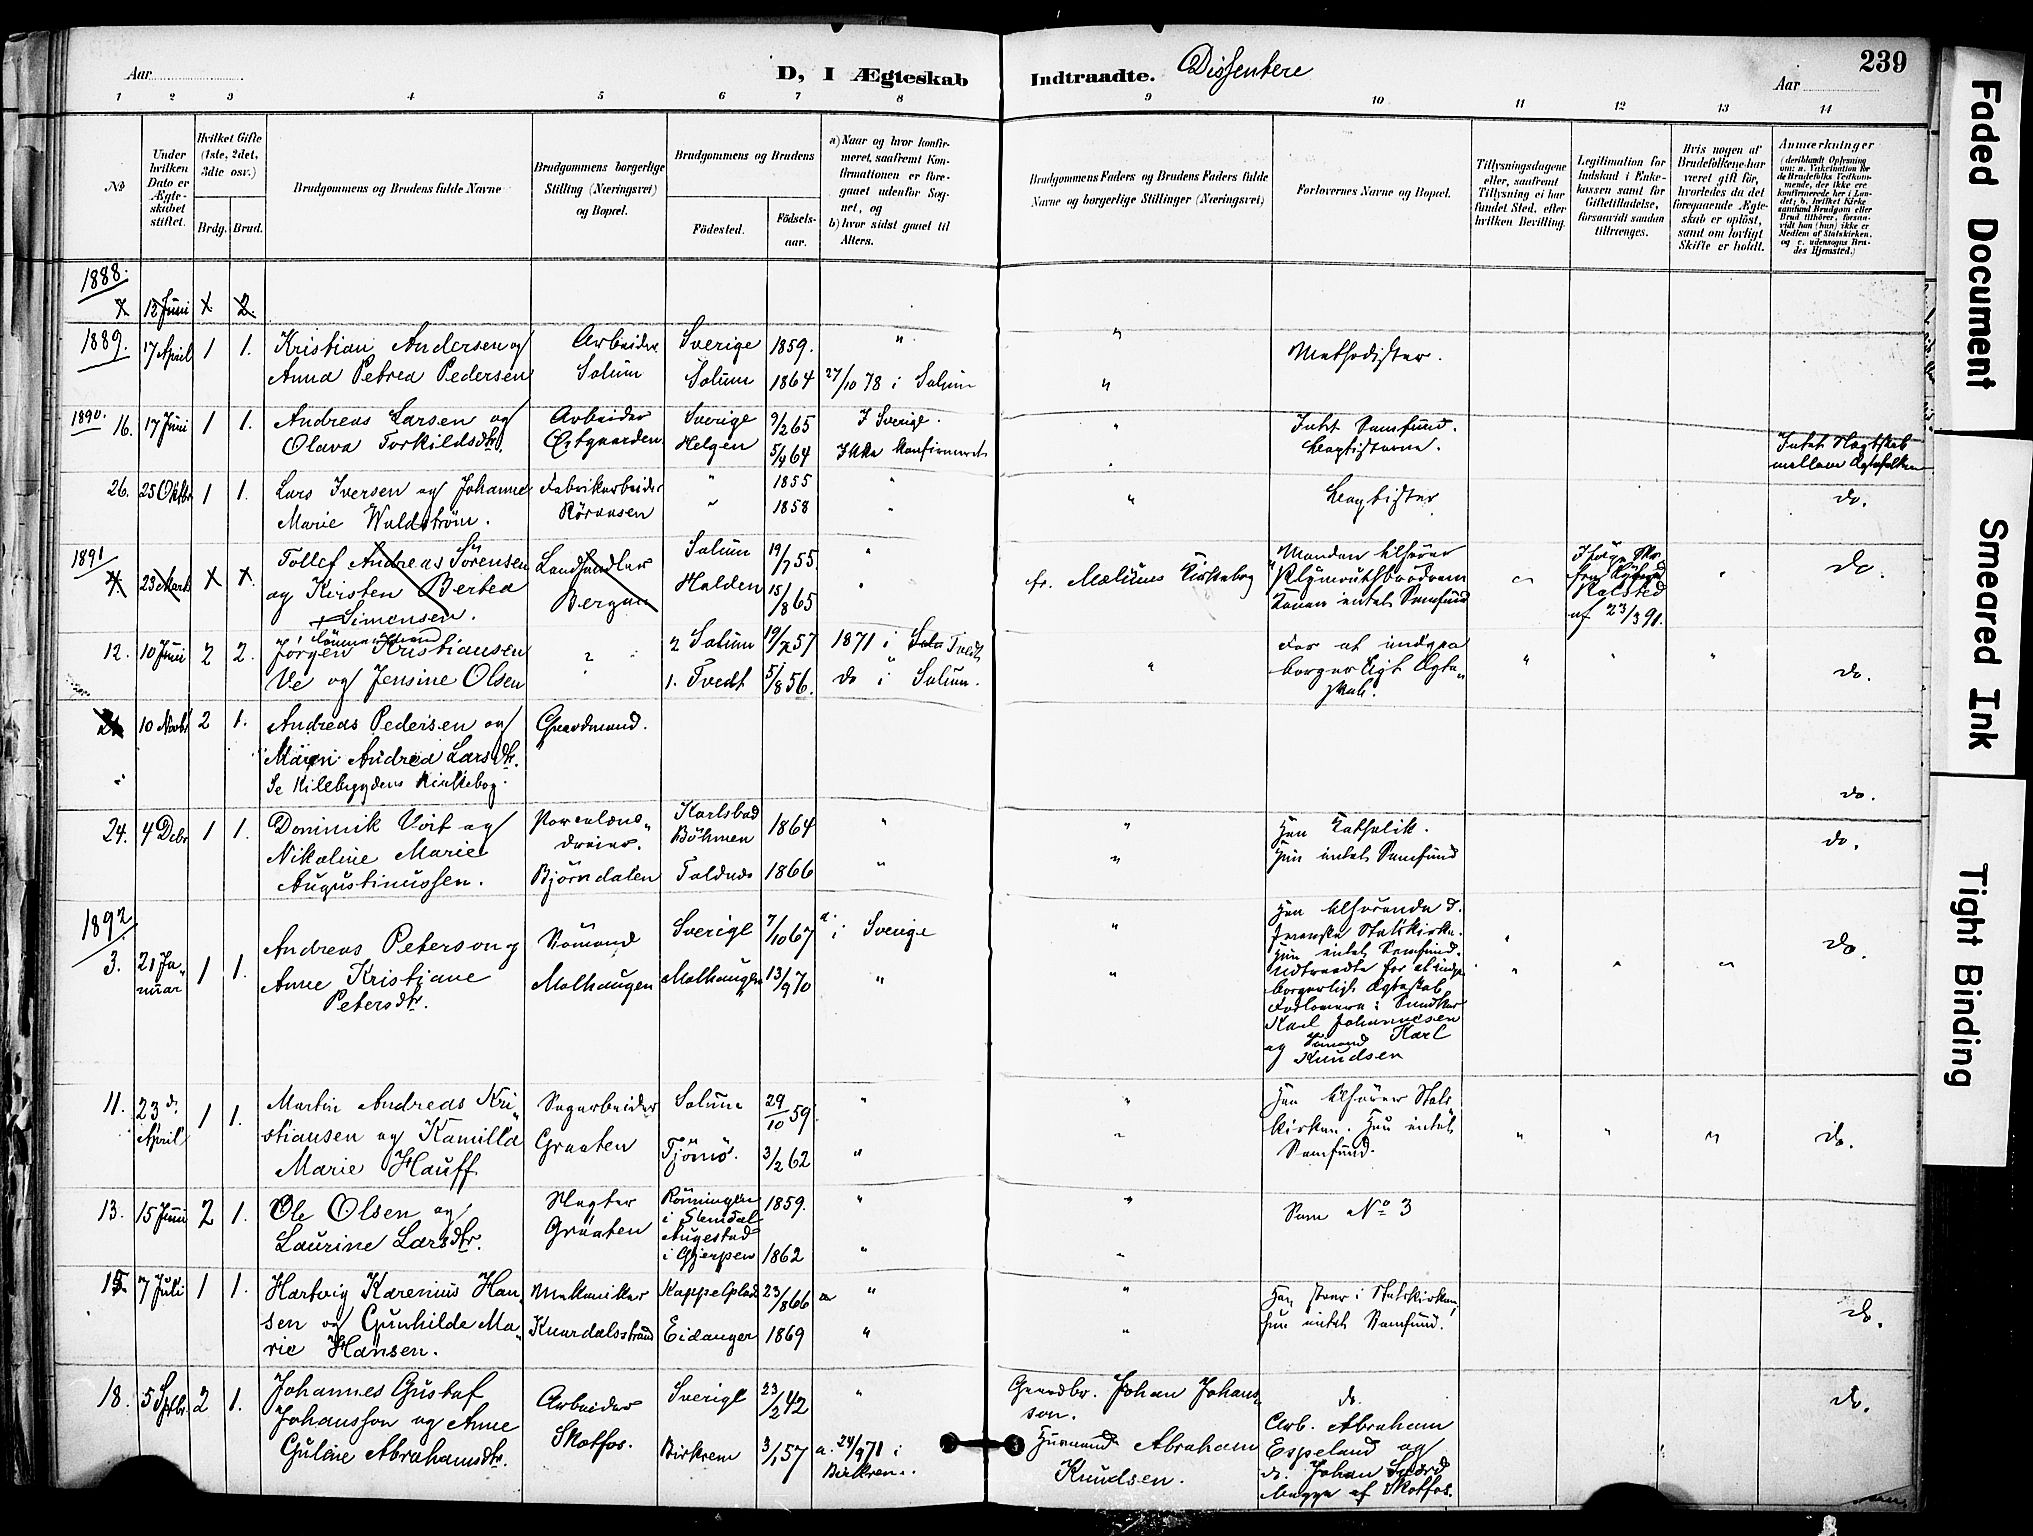 Aar
D, I Ægteskab
Indtraadte.
Dissentere
Aar
239
1 2 3 4 5 6 7 8 9 10 11 12 13 14
No
Under hvilken Dato er Ægteskabet stiftet.
Hvilket Gifte (1ste, 2det, 3die osv.)
Brdg. Brud.
Brudgommens og Brudens fulde Navne
Brudgommens borgerlige Stilling (Næringsvei) og Bopæl.
Brudgommens og Brudens
Fødested.
Fødselsaar.
a) Naar og hvor konfirmeret, saafremt Konfirmationen er foregaaet udenfor Sognet, og
b) hvor sidst gaaet til Alters.
Brudgommens Faders og Brudens Faders fulde Navne og borgerlige Stillinger (Næringsvei)
Forlovernes Navne og Bopæl.
Tillysningsdagene eller, saafremt Tillysning ei har fundet Sted, efter hvilken Bevilling.
Legitimation for Indskud i Enkekassen samt for Giftetilladelse, forsaavidt saadan tiltrænges.
Hvis nogen af Brudefolkene har været gift før, hvorledes da det foregaaende Ægteskab er opløst, samt om lovligt Skifte er holdt.
Anmærkninger
1888.
12 Juni 2.
1889.
17 April 1 1. Kristian Andersen og Arbeider Sverige 1859. " "
Anna Petrea Pedersen Solum Solum 1864 27/10 78 i Solum " Methodister.
1890. 16. 17 Juni 1 1. Andreas Larsen og Arbeider Sverige 9/2 65 I Sverige. " Intet Samfund.
Olava Torkildsdtr. Helgen 5/9 64 Ikke konfirmeret Baptisterne. Intet Slægtskab mellem Ægtefolkene
26. 25 Oktbr 1 1. Lars Iversen og Johanne Fabrikarbeider " 1855 " " Baptister do.
Marie Waldstrøm. " 1858 "
1891
23 Marts Tollef Andreas Sørensen Landhandler Solum 19/7 55. " fr. Melums Kirkebog Manden tilhører
og Kirsten Bertea Bergan Holden 15/8 65 " Plymouthbrødrene
Simonsen. Konen intet Samfund af 23/3 91. do.
12. 10 Juni 2 2. Jørgen Kristiansen " 2 Solum 19/7 57 1871 i Tvedt " For at indgaa
Ve og Jensine Olsen " 1. Tvedt 5/8 56. do i Solum. borgerligt Ægteskab. " " " do.
10 Novbr 2 1. Andreas Pedersen og Gaardmand.
Maren Andrea Larsdtr.
Se Kilebygdens Kirkebog. do.
24. 4 Debr 1 1. Dominik Voit og Porcelænsdreier. Karlsbad Böhmen 1864 " " Han Katholik. do.
Nikoline Marie Hun intet Samfund
Augustinussen. Bjørndalen 1866 " "
1892.
3. 21 Januar 1 1. Andreas Peterson og Sømand Sverige 7/10 67 a. i Sverige " Han tilhørende d.
Anne Kristiane Molhaugen Molhaugen 13/9 70 " " svenske Statskirke.
Petersdtr. Hun intet Samfund.
Udtraadte for at indgaa
borgerligt Ægteskab
Forlovere:
Karl Johannesen
og Sømand Karl
Knudsen
do.
11. 23d. April 1 1. Martin Andreas Kristiansen og Kamilla Sagarbeider Solum 29/10 59. " " Han tilhører Statskirken. Hun intet Samfund.
Marie Hauff Graaten Tjømø. 3/2 62 " " " " " do.
13. 15 Juni 2 1. Ole Olsen og Slagter Rønningen 1859. " " Som No 3
Laurine Larsdtr. Graaten Augestad i Gjerpen 1862 " "
15. 7 Juli 1 1. Hartvig Karenius Hansen og Gunhilde Marie Hansen. Mekaniker Kappelplad 23/8 66 " " Han staar i Statskirken,
Knardalsstrand Eidanger 1869 " " hun intet Samfund. do.
18. 5 Sptbr. 2 1. Johannes Gustaf Arbeider Sverige 23/2 42 " Gaardbr. Johan Johansson. do.
Johansson og Anne Skotfos. Birkrem 3/1 57 a. 24/9 71 i Birkrem. Husmand Abraham Knudsen. Arb. Abraham
Guline Abrahamsdtr. Espeland og
do. Johan
begge af Skotfos.
do.
Faded Document
Smeared Ink
Tight Binding